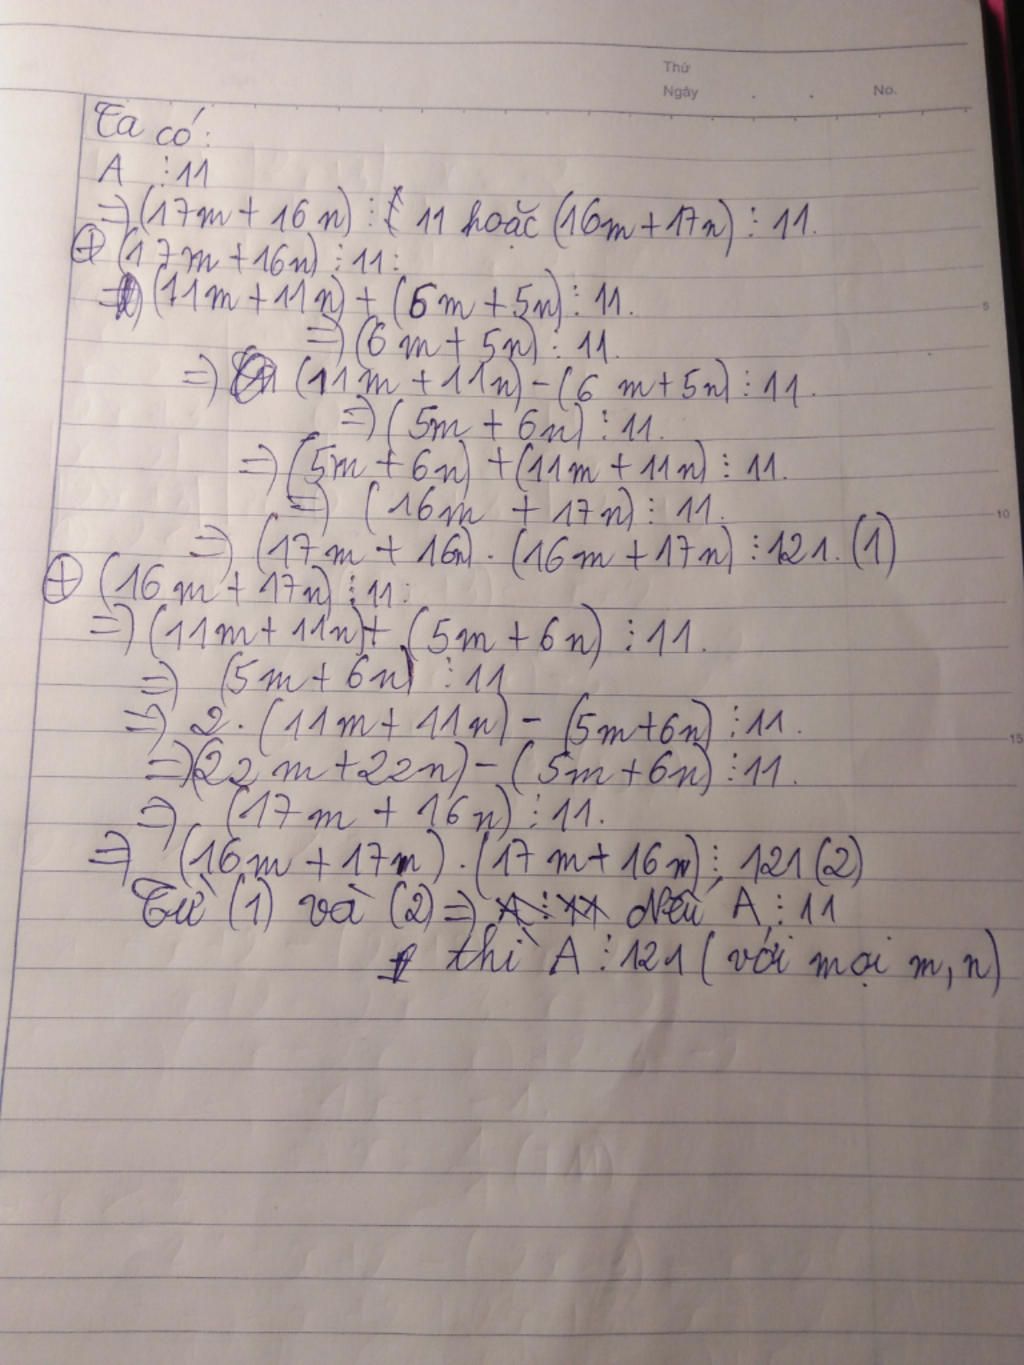 Thứ
Ngày . . No.
Ta có:
A ⋮ 11
=> (17m + 16n) ⋮ 11 hoặc (16m + 17n) ⋮ 11.
⊕ (17m + 16n) ⋮ 11:
=> (11m + 11n) + (6m + 5n) ⋮ 11.
=> (6m + 5n) ⋮ 11.
=> (11m + 11n) - (6m + 5n) ⋮ 11.
=> (5m + 6n) ⋮ 11.
=> (5m + 6n) + (11m + 11n) ⋮ 11.
=> (16m + 17n) ⋮ 11.
=> (17m + 16n) . (16m + 17n) ⋮ 121. (1)
⊕ (16m + 17n) ⋮ 11:
=> (11m + 11n) + (5m + 6n) ⋮ 11.
=> (5m + 6n) ⋮ 11
=> 2. (11m + 11n) - (5m + 6n) ⋮ 11.
=> (22m + 22n) - (5m + 6n) ⋮ 11.
=> (17m + 16n) ⋮ 11.
=> (16m + 17n) . (17m + 16n) ⋮ 121 (2)
Từ (1) và (2) => A ⋮ 11 Nếu A ⋮ 11
thì A ⋮ 121 (với mọi m, n)
5
10
15